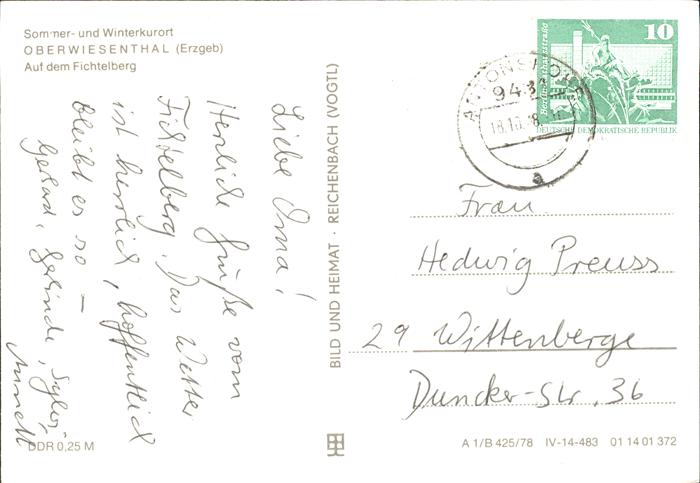 Sommer- und Winterkurort
OBERWIESENTHAL (Erzgeb)
Auf dem Fichtelberg
Liebe Oma!
Herzliche Grüße vom
Fichtelberg. Das Wetter
ist herrlich, hoffentlich
bleibt es so –
Gerhard, Gerlinde,
Annett
DDR 0,25 M
BILD UND HEIMAT · REICHENBACH (VOGTL)
10
DEUTSCHE DEMOKRATISCHE REPUBLIK
Frau
Hedwig Preuss
29 Wittenberge
Duncker-Str. 36
A 1/B 425/78 IV-14-483 01 14 01 372